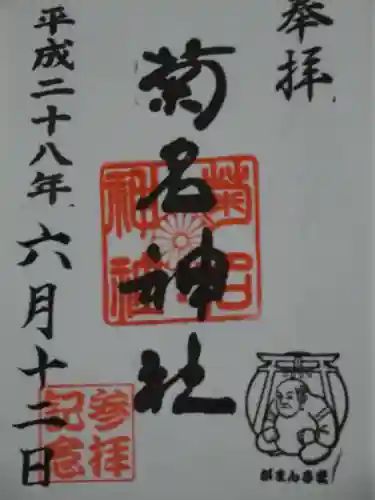 奉拝
菊名神社
菊名
神社
平成二十八年六月十二日
参拝
記念
がまんさま